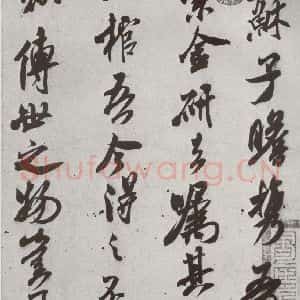 蘇子瞻攜吾
紫金研去囑其
棺吾今得之不
傳世之物豈可
Shufawang.CN